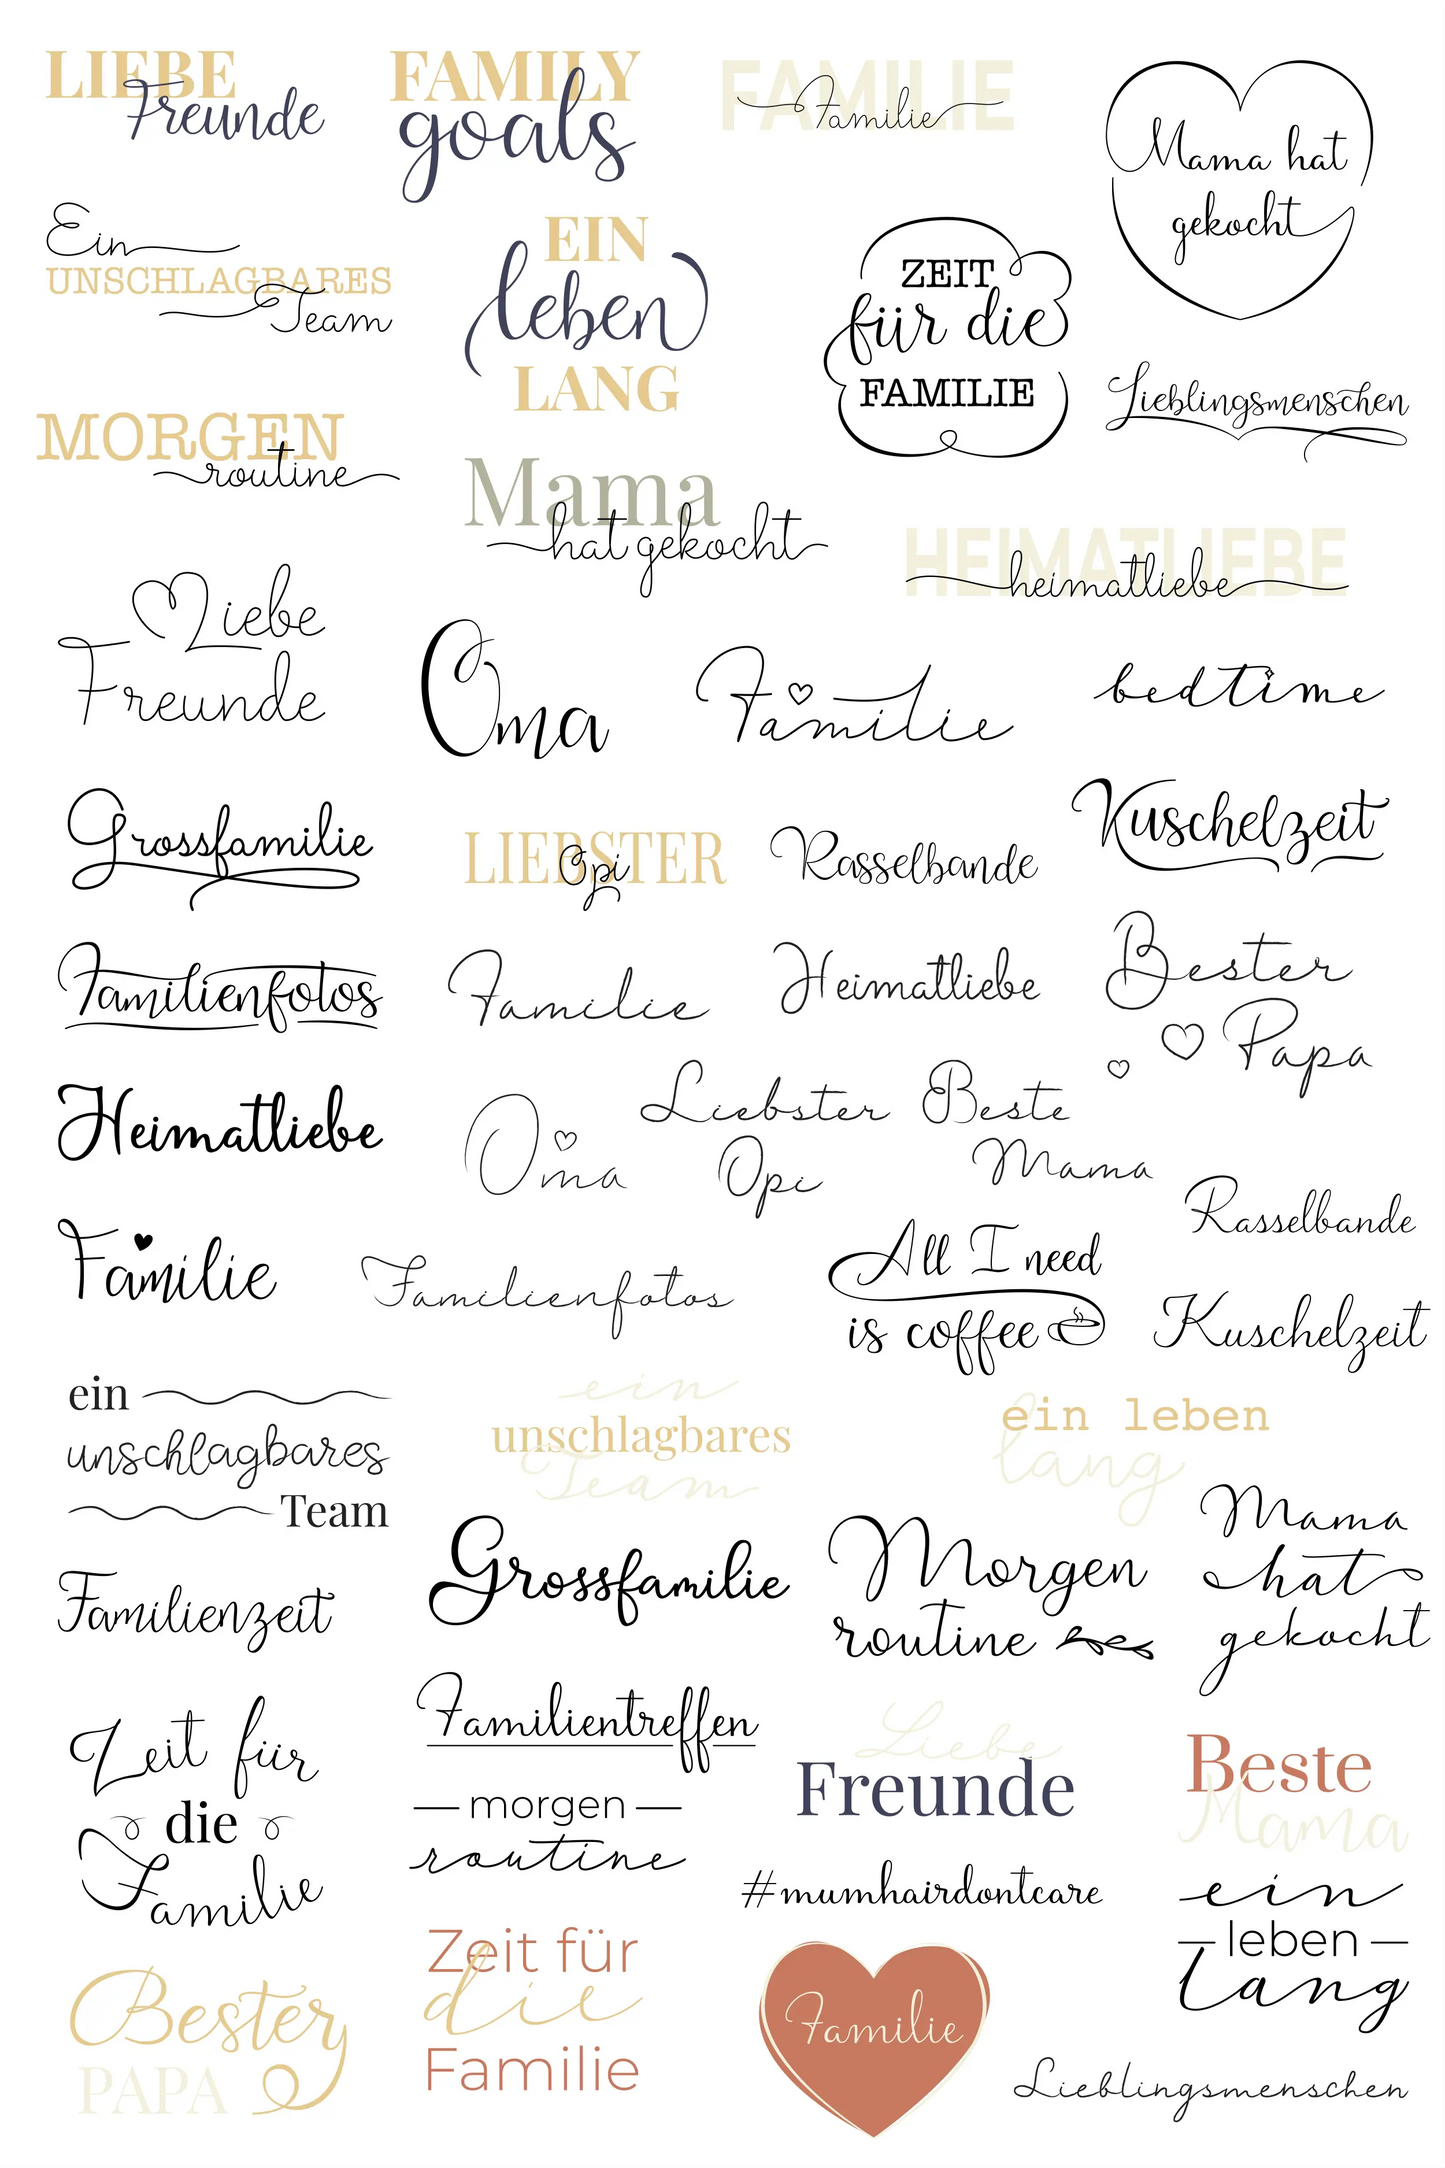 LIEBE
Freunde
FAMILY
goals
FAMILIE
Familie
Mama hat
gekocht
Ein
UNSCHLAGBARES
Team
EIN
leben
LANG
ZEIT
für die
FAMILIE
Lieblingsmenschen
MORGEN
routine
Mama
hat gekocht
HEIMATLIEBE
heimatliebe
Liebe
Freunde
Oma
Familie
bedtime
Grossfamilie
LIEBSTER
Opi
Rasselbande
Kuschelzeit
Familienfotos
Familie
Heimatliebe
Bester
Papa
Heimatliebe
Oma
Liebster
Opi
Beste
Mama
Rasselbande
Familie
Familienfotos
All I need
is coffee
Kuschelzeit
ein
unschlagbares
Team
ein
unschlagbares
Team
ein leben
lang
Familienzeit
Grossfamilie
Morgen
routine
Mama
hat
gekocht
Zeit für
die
Familie
Familientreffen
morgen
routine
Liebe
Freunde
Beste
Mama
#mumhairdontcare
ein
leben
lang
Bester
PAPA
Zeit für
die
Familie
Familie
Lieblingsmenschen